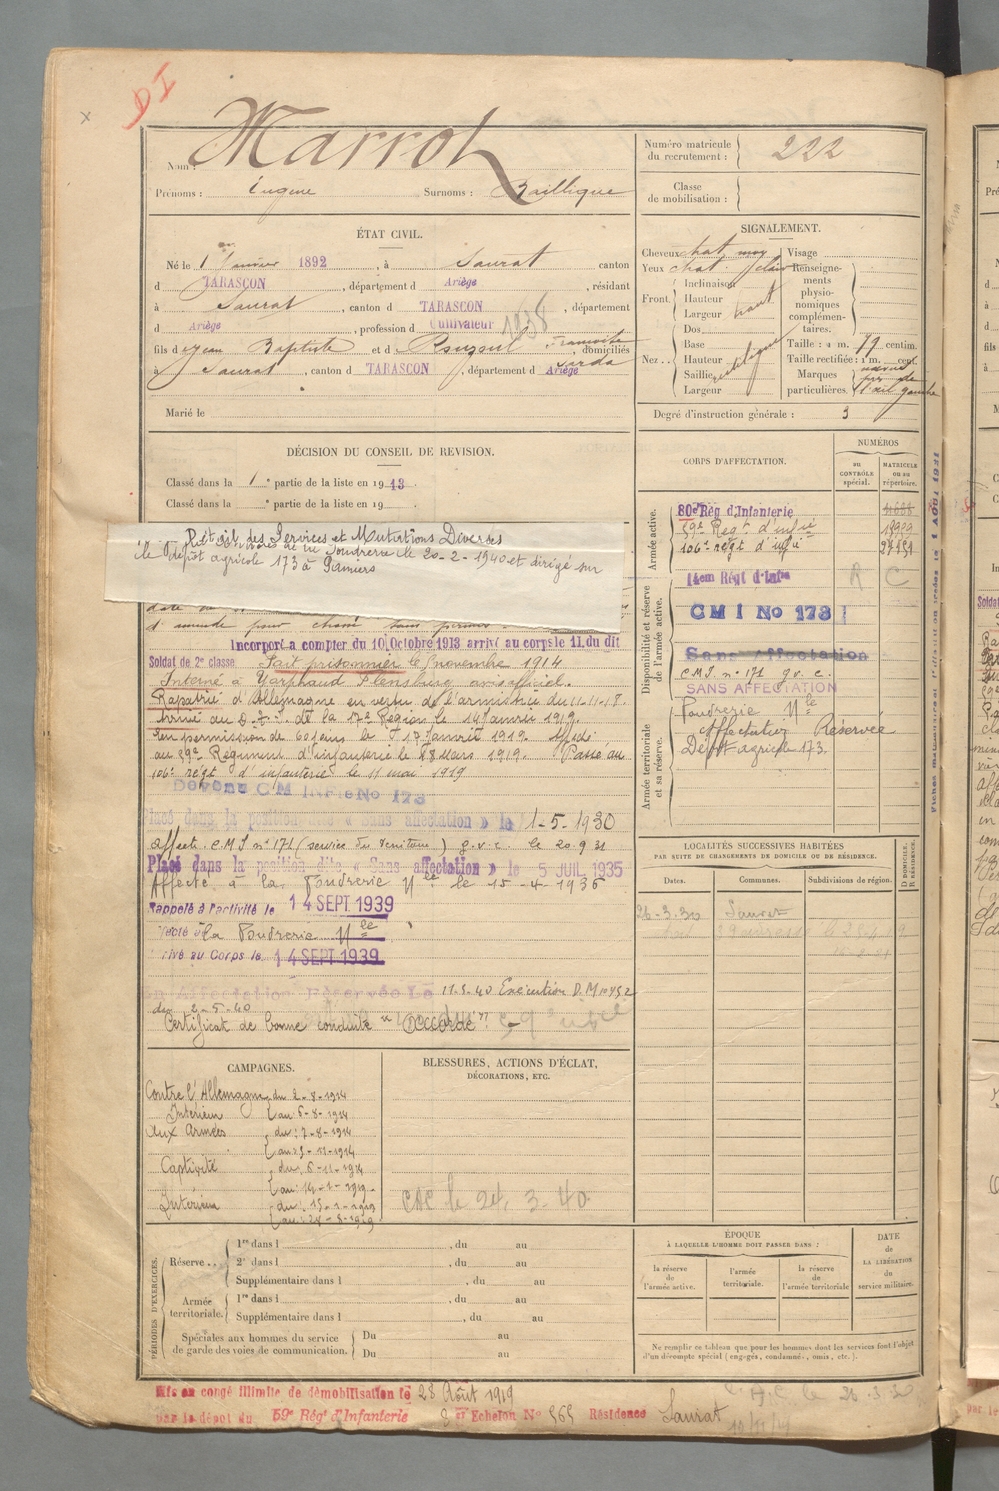 DI
x
Nom : Marrot
Prénoms : Eugène Surnoms : Baillique
Numéro matricule du recrutement : 222
Classe de mobilisation :
ÉTAT CIVIL.
Né le 1er Janvier 1892, à Saurat canton
d TARASCON, département d Ariège, résidant
à Saurat, canton d TARASCON, département
d Ariège, profession d Cultivateur 1938
fils d Jean Baptiste et d Rouzoul, domiciliés
à Saurat, canton d TARASCON, département d Ariège
Marié le
SIGNALEMENT.
Cheveux chat. moy Visage
Yeux chat. clair Renseignements physionomiques complémentaires.
Front. Inclinaison
Hauteur haut
Largeur
Nez .. Dos
Base
Hauteur
Saillie rectiligne
Largeur
Taille : 1 m. 79 centim.
Taille rectifiée : 1 m. cent.
Marques particulières. l'œil gauche
Degré d'instruction générale : 3
DÉCISION DU CONSEIL DE REVISION.
Classé dans la 1 e partie de la liste en 1913
Classé dans la e partie de la liste en 19
Détail des Services et Mutations Diverses
le 20-2-1940 et dirigé sur
le dépôt agricole 173 à Pamiers
d'amende pour chasse sans permis.
Incorporé a compter du 10 Octobre 1913 arrivé au corps le 11. du dit
Soldat de 2e classe Fait prisonnier le novembre 1914
Interné à Flensburg avis officiel.
Rapatrié d'Allemagne en vertu de l'armistice du 11-11-18.
Arrivé au D.I. de la 17e Région le 14 Janvier 1919.
En permission de 60 jours le 15 Janvier 1919.
au 59e Régiment d'infanterie le 18 Mars 1919. Passé au
106e régt d'infanterie le 11 mai 1919
Devenu CM INFie No 173
Placé dans la position dite « Sans affectation » le 1-5-1930
affecté C.M.I n° 171 (service du territoire) g.v.c. le 20 9 31
Placé dans la position dite « Sans affectation » le 5 JUIL 1935
Affecté à la Poudrerie Nle le 15-4-1936
Rappelé à l'activité le 14 SEPT 1939
à la Poudrerie Nle
Arrivé au Corps le 14 SEPT 1939
en Affectation Réservée Le 11.5.40 Exécution D.M 10752
du 2-5-40
Certificat de bonne conduite "Accordé"
CORPS D'AFFECTATION.
NUMÉROS
AU CONTRÔLE spécial.
MATRICULE ou au répertoire.
Armée active.
80e Rég d'Infanterie
59e Regt d'infie
106e régt d'infie
Disponibilité et réserve de l'armée active.
14em Régt d'Infie R C
CM I No 173
Sans Affectation
C.M.I. n° 171 g.v.c.
SANS AFFECTATION
Armée territoriale et sa réserve.
Poudrerie Nle
Affectation Réservée
Dépôt agricole 173.
LOCALITÉS SUCCESSIVES HABITÉES
PAR SUITE DE CHANGEMENTS DE DOMICILE OU DE RÉSIDENCE.
Dates. Communes. Subdivisions de région. D DOMICILE. R RÉSIDENCE.
26-3-30 Saurat
CAMPAGNES.
Contre l'Allemagne du 2-8-1914
Intérieur au 6-8-1914
Aux Armées du 7-8-1914
au 5-11-1914
Captivité du 6-11-1914
au 14-1-1919
Intérieur du 15-1-1919
au 28-8-1919
BLESSURES, ACTIONS D'ÉCLAT,
DÉCORATIONS, ETC.
CAC le 24. 3-40
PÉRIODES D'EXERCICES.
Réserve .. 1re dans l , du au
2e dans l , du au
Supplémentaire dans l , du au
Armée territoriale. 1re dans l , du au
Supplémentaire dans l , du au
Spéciales aux hommes du service de garde des voies de communication. Du au
Du au
ÉPOQUE
À LAQUELLE L'HOMME DOIT PASSER DANS :
la réserve de l'armée active.
l'armée territoriale.
la réserve de l'armée territoriale
DATE de LA LIBÉRATION du service militaire.
Ne remplir ce tableau que pour les hommes dont les services font l'objet
d'un décompte spécial (engagés, condamnés, omis, etc.).
Mis en congé illimité de démobilisation le 28 Août 1919
par le dépôt du 59e Régt d'Infanterie Echelon No 565 Résidence Saurat